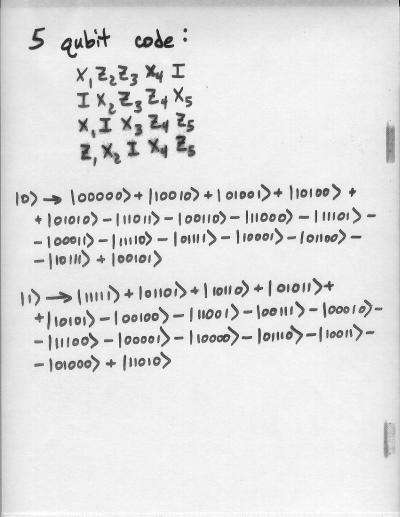 5 qubit code:
X₁ Z₂ Z₃ X₄ I
I X₂ Z₃ Z₄ X₅
X₁ I X₃ Z₄ Z₅
Z₁ X₂ I X₄ Z₅
|0⟩ → |00000⟩ + |10010⟩ + |01001⟩ + |10100⟩ +
+ |01010⟩ - |11011⟩ - |00110⟩ - |11000⟩ - |11101⟩ -
- |00011⟩ - |11110⟩ - |01111⟩ - |10001⟩ - |01100⟩ -
- |10111⟩ + |00101⟩
|1⟩ → |11111⟩ + |01101⟩ + |10110⟩ + |01011⟩ +
+ |10101⟩ - |00100⟩ - |11001⟩ - |00111⟩ - |00010⟩ -
- |11100⟩ - |00001⟩ - |10000⟩ - |01110⟩ - |10011⟩ -
- |01000⟩ + |11010⟩